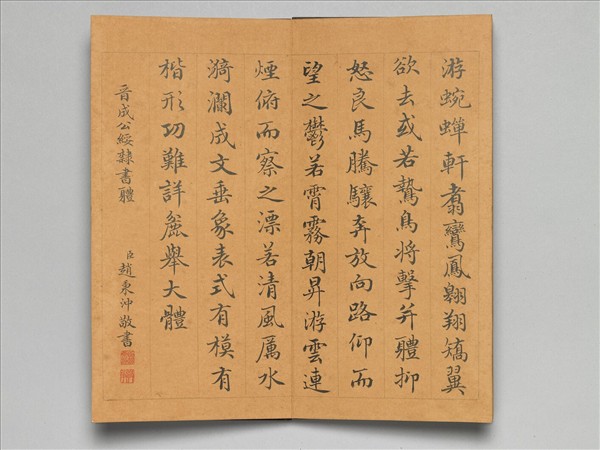 游蜿蟬軒翥鸞鳳翱翔矯翼
欲去或若鷙鳥將擊并體抑
怒良馬騰驤奔放向路仰而
望之鬱若霄霧朝昇游雲連
煙俯而察之漂若清風厲水
漪瀾成文垂象表式有模有
楷形功難詳麄舉大體
晉成公綏隸書體
臣趙秉沖敬書